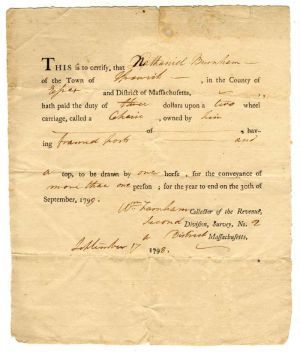 THIS is to certify, that Nathaniel Burnham
of the Town of Ipswich, in the County
of Essex and District of Massachusetts,
hath paid the duty of three dollars upon a two wheel
carriage, called a Chaise, owned by him
of , hav-
ing framed posts and
a top, to be drawn by one horse, for the conveyance
of more than one person; for the year to end on the 30th of
September, 1799.
Wm Farnham Collector of the Revenue,
Second Division, Survey, No. 2
District Massachusetts.
September 17 1798.